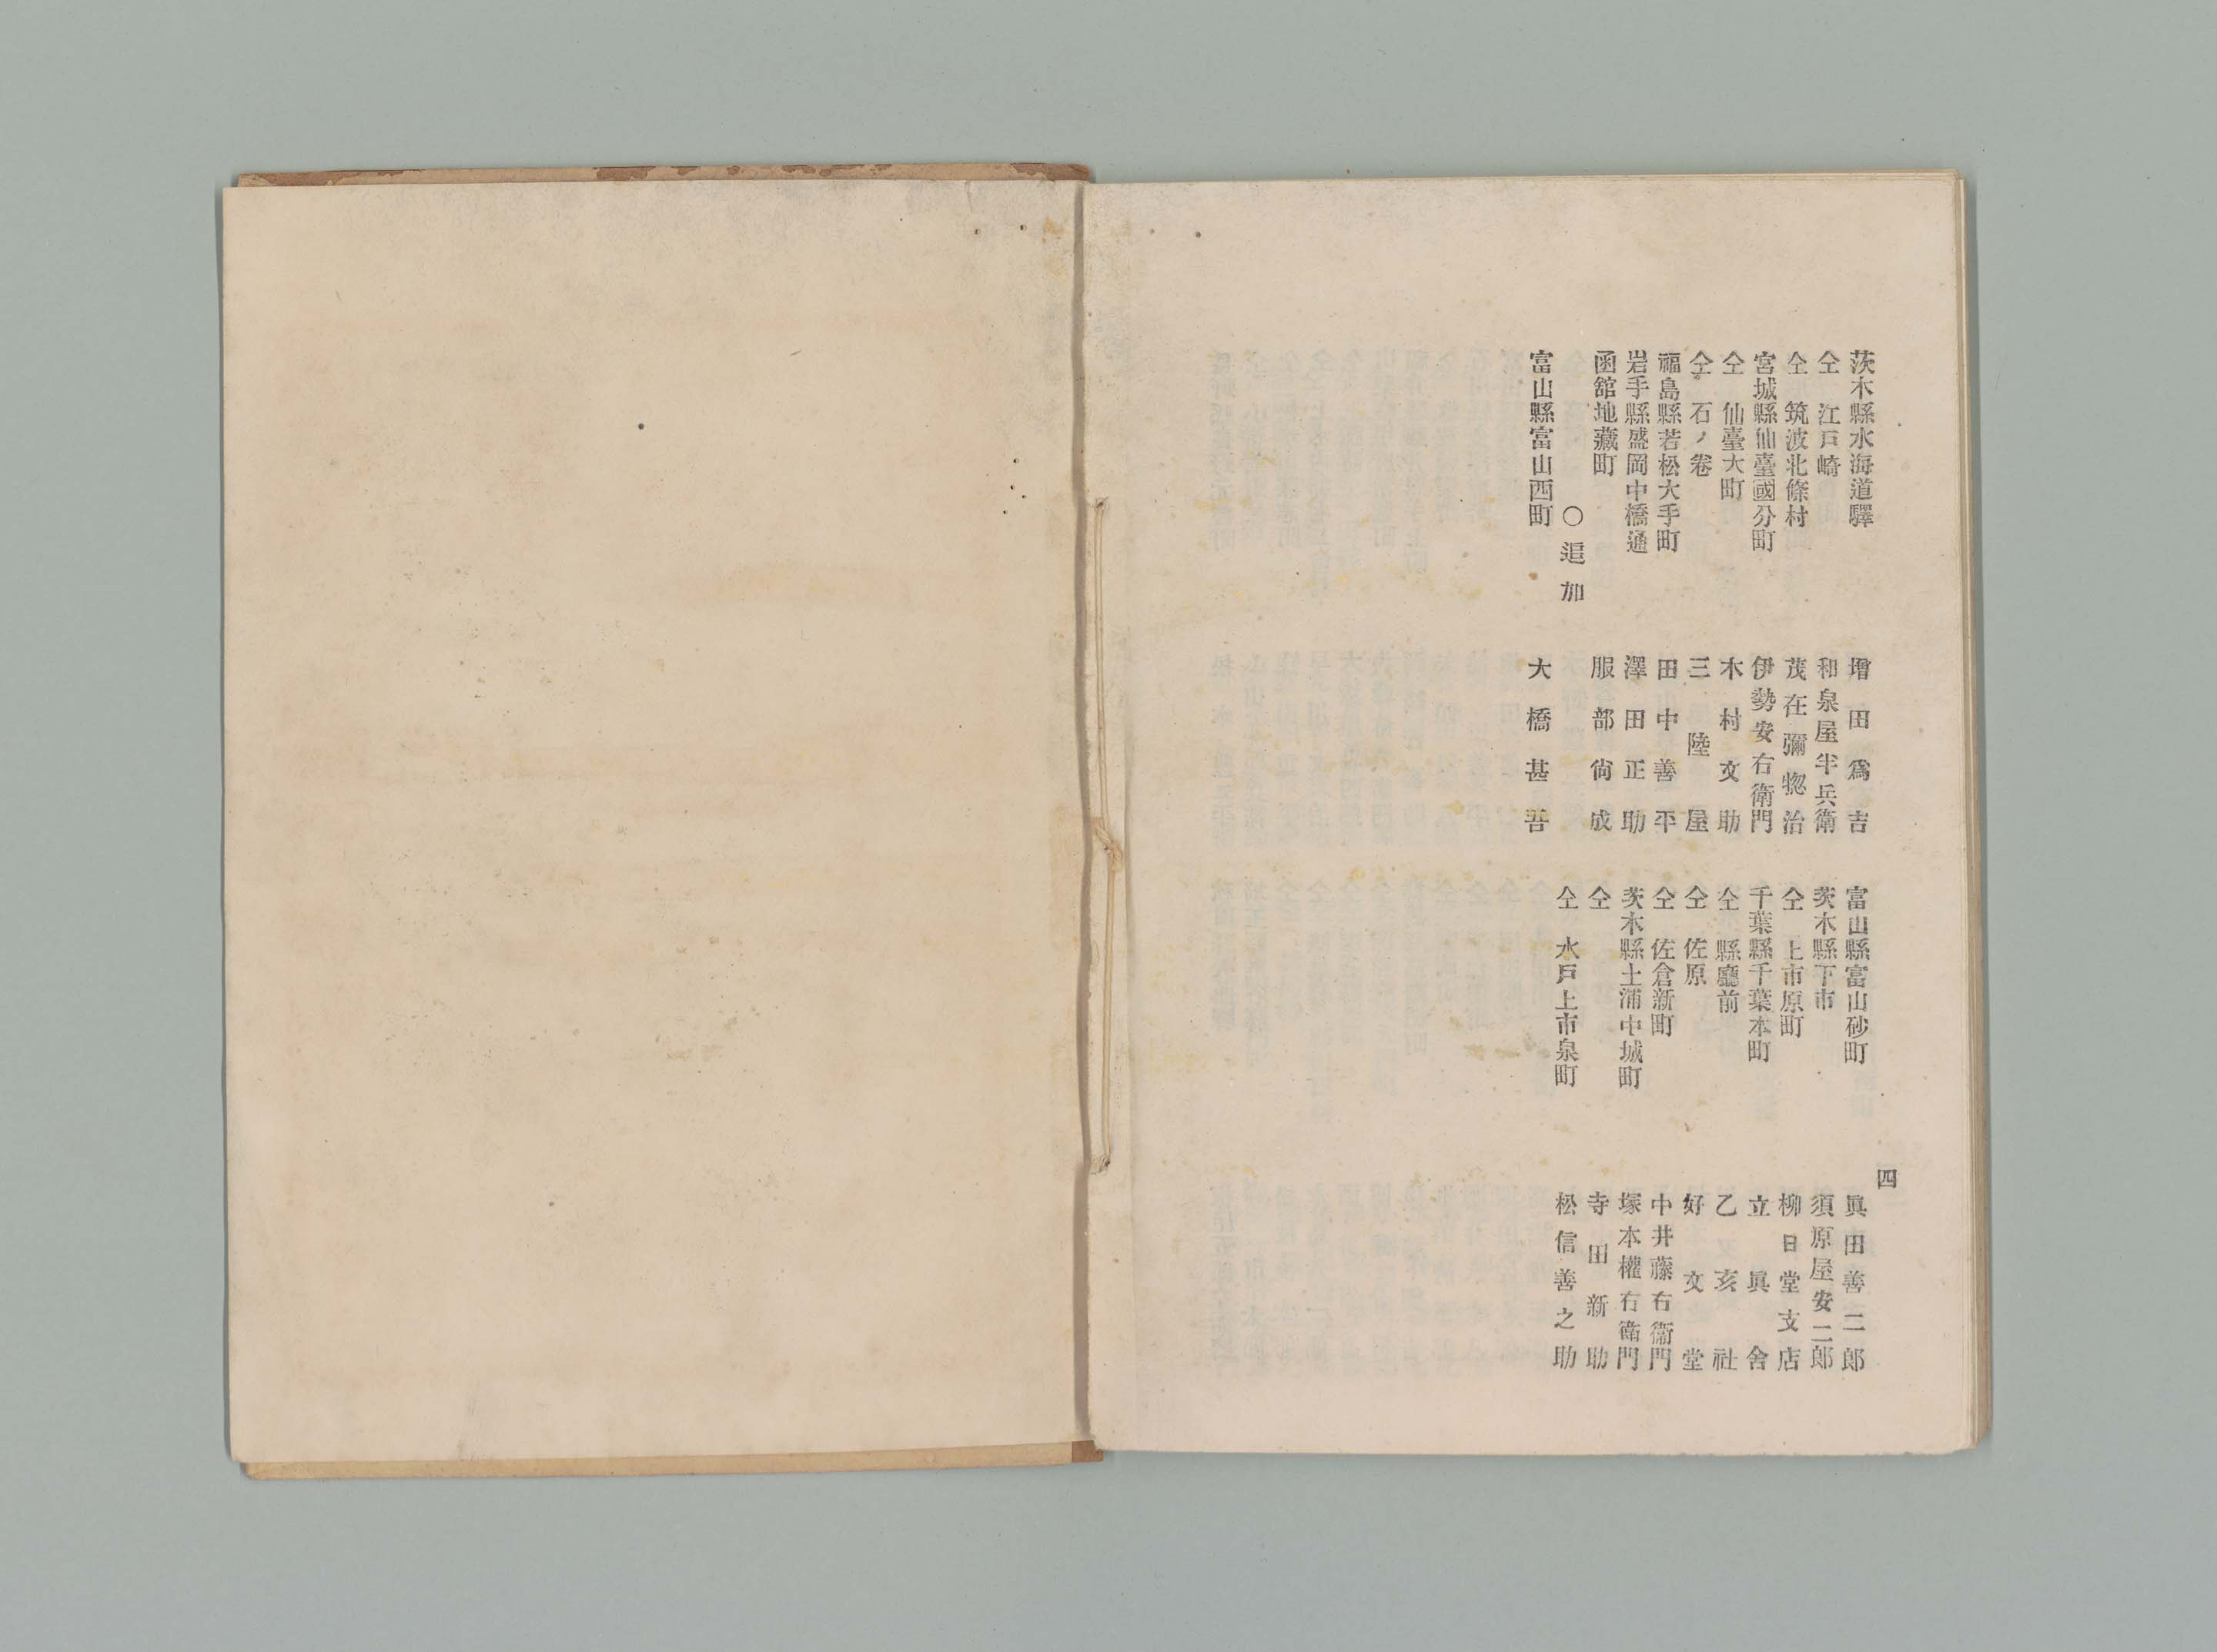 四
茨木縣水海道驛　增田爲吉
仝　江戸崎　和泉屋半兵衛
仝　筑波北條村　茂在彌惣治
宮城縣仙臺國分町　伊勢安右衛門
仝　仙臺大町　木村文助
仝　石ノ卷　三陸屋
福島縣若松大手町　田中善平
岩手縣盛岡中橋通　澤田正助
函舘地藏町　服部尙成
○追加
富山縣富山西町　大橋甚吾
富山縣富山砂町　眞田善二郎
茨木縣下市　須原屋安二郎
仝　上市原町　柳日堂支店
千葉縣千葉本町　立眞舍
仝　縣廳前　乙亥社
仝　佐原　好文堂
仝　佐倉新町　中井藤右衞門
茨木縣土浦中城町　塚本權右衞門
仝　寺田新助
仝　水戸上市泉町　松信善之助